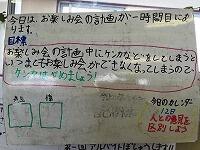 今日は、お楽しみ会の計画が一時間目にあ
ります。
目標
お楽しみ会の計画中にケンカなどをしてしまうと
いつまでもお楽しみ会ができなくなってしまうので、
ケンカはやめましょう!
今日のカレンダー
12日
人との意見を
区別しよう